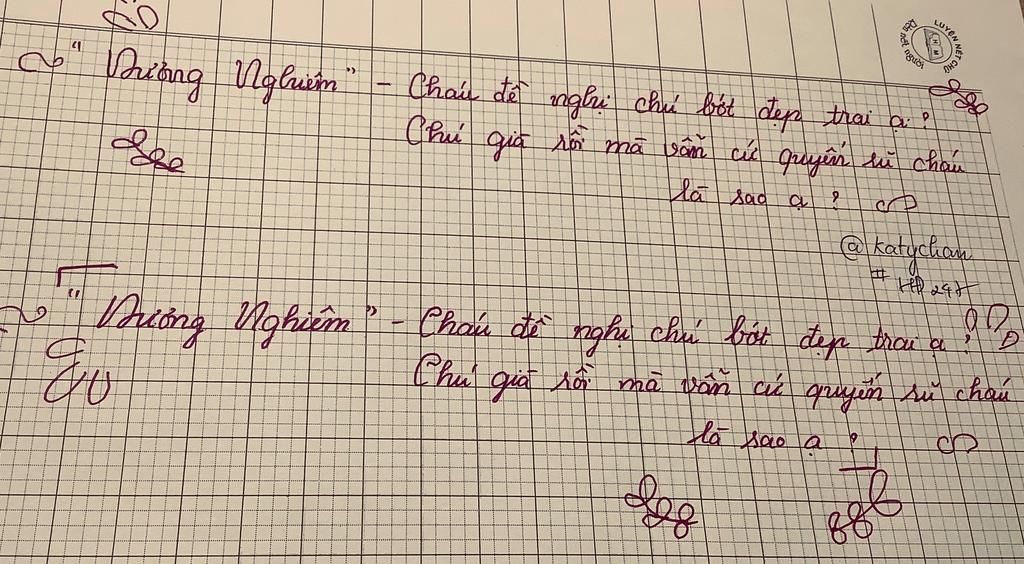 LUYỆN NÉT CHỮ
" Dương Nghiêm " - Cháu đề nghị chú bớt đẹp trai ạ?
Chú già rồi mà vẫn cứ quyến rũ cháu
là sao ạ ?
@katychan
"Dương Nghiêm" - Cháu đề nghị chú bớt đẹp trai ạ?
Chú già rồi mà vẫn cứ quyến rũ cháu
là sao ạ ?